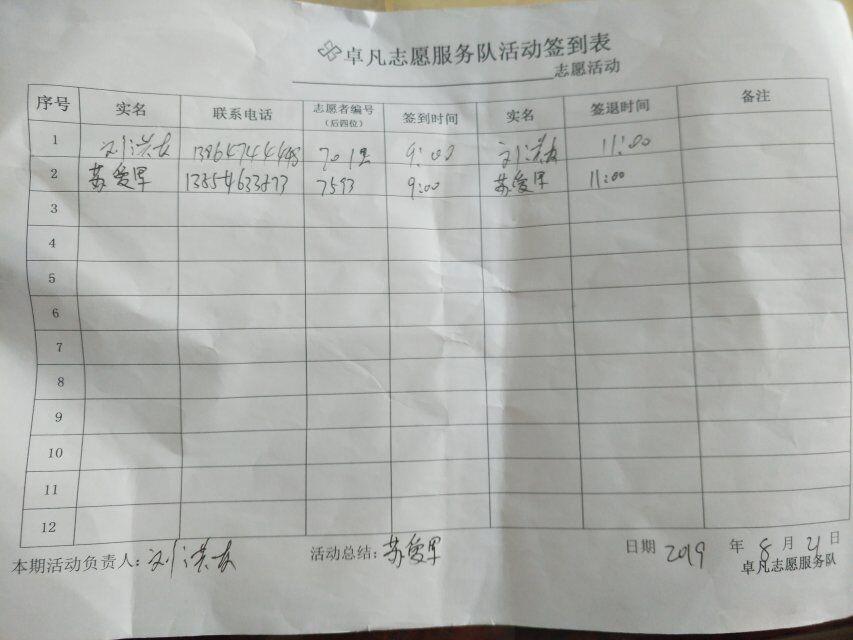 卓凡志愿服务队活动签到表
志愿活动
序号 实名 联系电话 志愿者编号（后四位） 签到时间 实名 签退时间 备注
1 刘洪友 13864744448 701 9:00 刘洪友 11:00
2 苏爱军 13854633873 7593 9:00 苏爱军 11:00
3
4
5
6
7
8
9
10
11
12
本期活动负责人：刘洪友 活动总结：苏爱军 日期 2019 年 8 月 21 日
卓凡志愿服务队